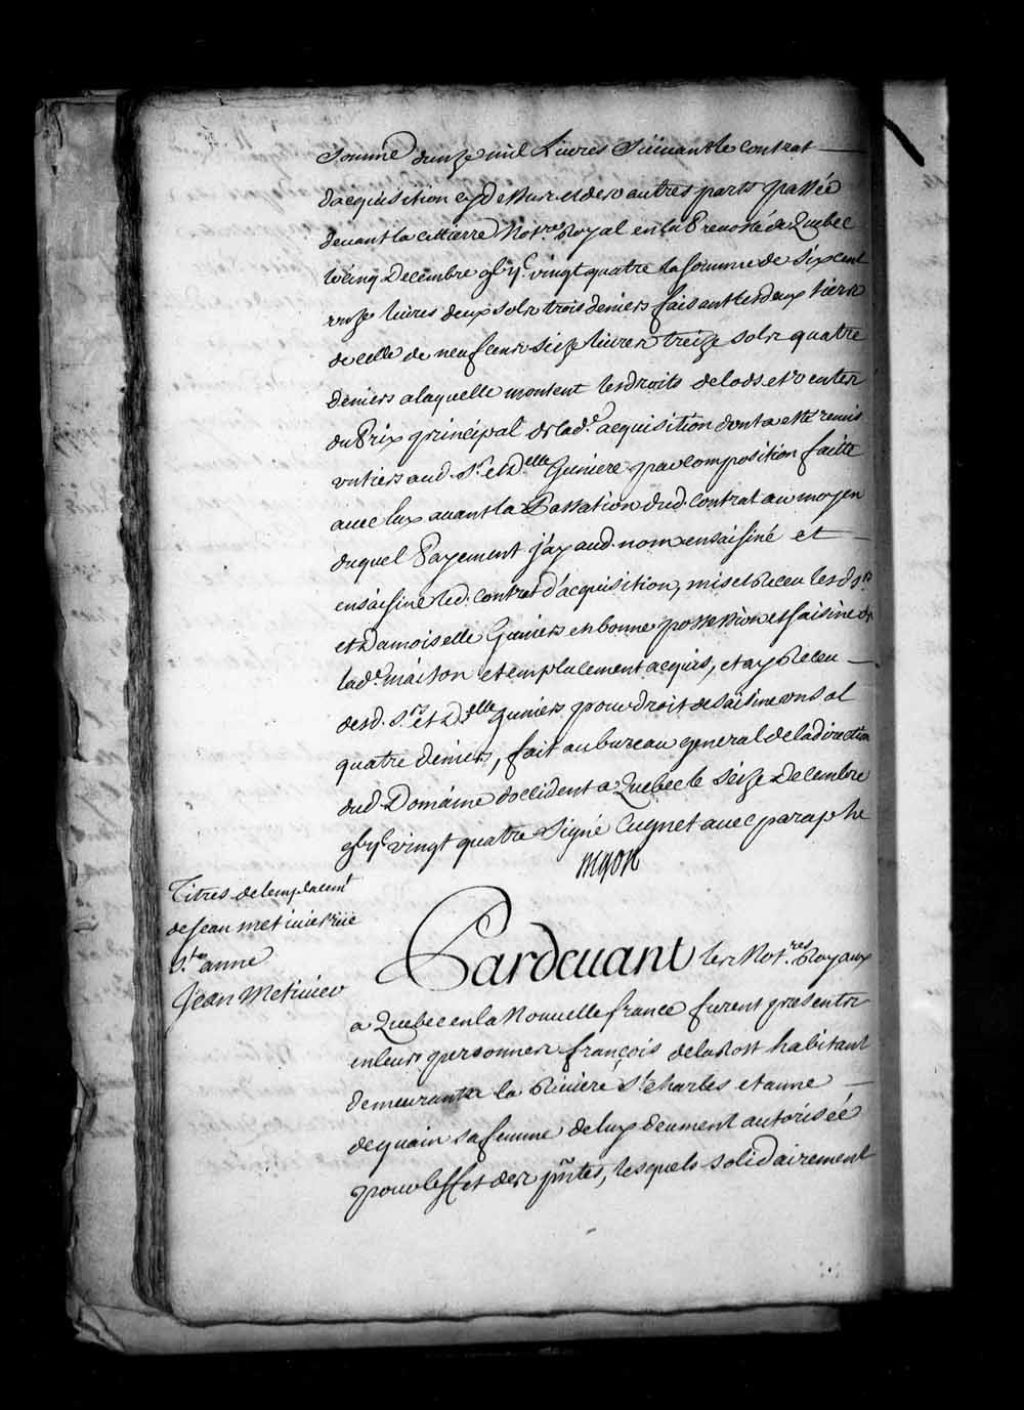 Somme donze mil Livres Suivant le contrat
dacquisition cy dessus et des autres parts passée
devant la Cettierre Not.re Royal en la Prevosté de Quebec
le cinq Decembre gbijc. vingt quatre la somme de six cent
onze livres deux sols trois deniers faisant les deux tiers
de celle de neuf cens seize livres treize sols quatre
deniers a laquelle montent les droits de lods et ventes
du Prix principal de lad.e acquisition dont a esté remis
un tiers aud. Sr. et D.elle Guniere par composition faitte
avec lux avant la Passation dud. Contrat au moyen
duquel Payement j'ay aud. nom ensaisiné et
ensaisine led. contrat d'acquisition, mis et Receu lesd. Srs
et Damoiselle Guniere en bonne possession et saisine de
lad.e maison et emplacement acquis, et ay Receu
desd. S.rs et D.elle Guniere pour droit de saisine un sol
quatre deniers, fait au bureau general de la direction
dud. Domaine doccident a Quebec le Seize Decembre
gbijc vingt quatre Signé Cugnet avec paraphe
Titres de lemplacemt
de Jean metivier rüe
Ste. anne
Jean Metivier
Pardevant les Not.res Royaux
a Quebec en la Nouvelle france furent presents
en leurs personnes françois de la host habitant
demeurant a la Riviere St. Charles et anne
dequain sa femme de luy deument autorisée
pour leffet des pñtes, lesquels solidairement